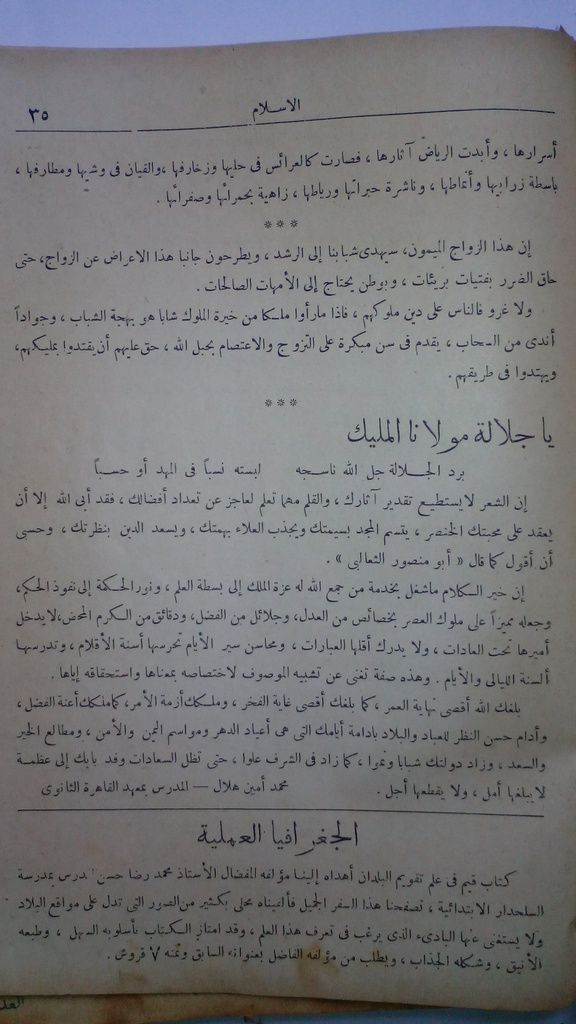 الاسلام
٣٥
أسرارها ، وأبدت الرياض آثارها ، فصارت كالعرائس فى حليها وزخارفها ،والقيان فى وشيها ومطارفها ،
باسطة زرابيها وأنماطها ، وناشرة حبراتها ورياطها ، زاهية بحمرائها وصفرائها .
* * *
إن هذا الزواج الميمون، سيهدى شبابنا إلى الرشد ، ويطرحون جانبا هذا الاعراض عن الزواج، حتى
حاق الضرر بفتيات بريئات ، وبوطن يحتاج إلى الأمهات الصالحات .
ولا غرو فالناس على دين ملوكهم ، فاذا مارأوا ملكا من خيرة الملوك شابا هو بهجة الشباب ، وجواداً
أندى من السحاب ، يقدم فى سن مبكرة على التزوج والاعتصام بحبل الله ، حق عليهم أن يقتدوا بمليكهم،
ويهتدوا فى طريقهم .
* * *
يا جلالة مولانا المليك
برد الجلالة جل الله ناسجه لبسته نسباً فى المهد أو حسباً
إن الشعر لايستطيع تقدير آثارك ، والقلم مهما تعلم لعاجز عن تعداد أفضالك ، فقد أبى الله إلا أن
يعقد على محبتك الخنصر ، يتسم المجد بسيمتك ويجذب العلاء بهمتك ، ويسعد الدين بنظرتك ، وحسبى
أن أقول كما قال « أبو منصور الثعالبى » .
إن خير الكلام ماشغل بخدمة من جمع الله له عزة الملك إلى بسطة العلم ، ونور الحكمة إلى نفوذ الحكم،
وجعله مميزاً على ملوك العصر بخصائص من العدل، وجلائل من الفضل، ودقائق من الكرم المحض،لايدخل
أيسرها تحت العادات ، ولا يدرك أقلها العبارات ، ومحاسن سير الأيام تحرسها أسنة الأقلام ، وتدرسها
ألسنة الليالى والأيام . وهذه صفة تغنى عن تشبيه الموصوف لاختصاصه بمعناها واستحقاقه إياها .
بلغك الله أقصى نهاية العمر ، كما بلغك أقصى غاية الفخر ، وملكك أزمة الأمر، كما ملكك أعنة الفضل ،
وأدام حسن النظر للعباد والبلاد بادامة أيامك التى هى أعياد الدهر ومواسم اليمن والأمن ، ومطالع الخير
والسعد ، وزاد دولتك شبابا ونموا ، كما زاد فى الشرف علوا ، حتى تظل السعادات وفد بابك إلى عظمة
لا يبلغها أمل ، ولا يقطعها أجل . محمد أمين هلال — المدرس بمعهد القاهرة الثانوى
الجغرافيا العملية
كتاب قيم فى علم تقويم البلدان أهداه إلينا مؤلفه المفضال الأستاذ محمد رضا حسن المدرس بمدرسة
السلحدار الابتدائية ، تصفحنا هذا السفر الجليل فألفيناه محلى بكثير من الصور التى تدل على مواقع البلاد
ولا يستغنى عنها البادىء الذى يرغب فى تعرف هذا العلم ، وقد امتاز الكتاب بأسلوبه السهل ، وطبعه
الأنيق ، وشكله الجذاب ، ويطلب من مؤلفه الفاضل بعنوانه السابق وثمنه ٧ قروش .